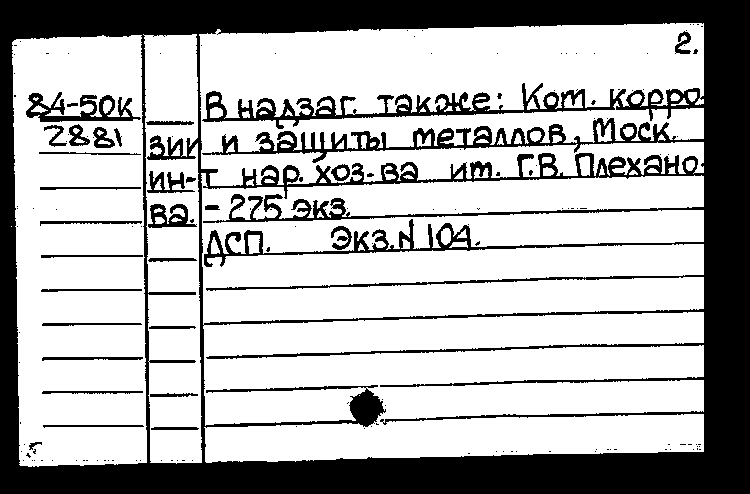 2.
84-50к
2881
В надзаг. также: Ком. корро-
зии и защиты металлов, Моск.
ин-т нар. хоз-ва им. Г.В. Плехано-
ва. - 275 экз.
ДСП. Экз.N 104.